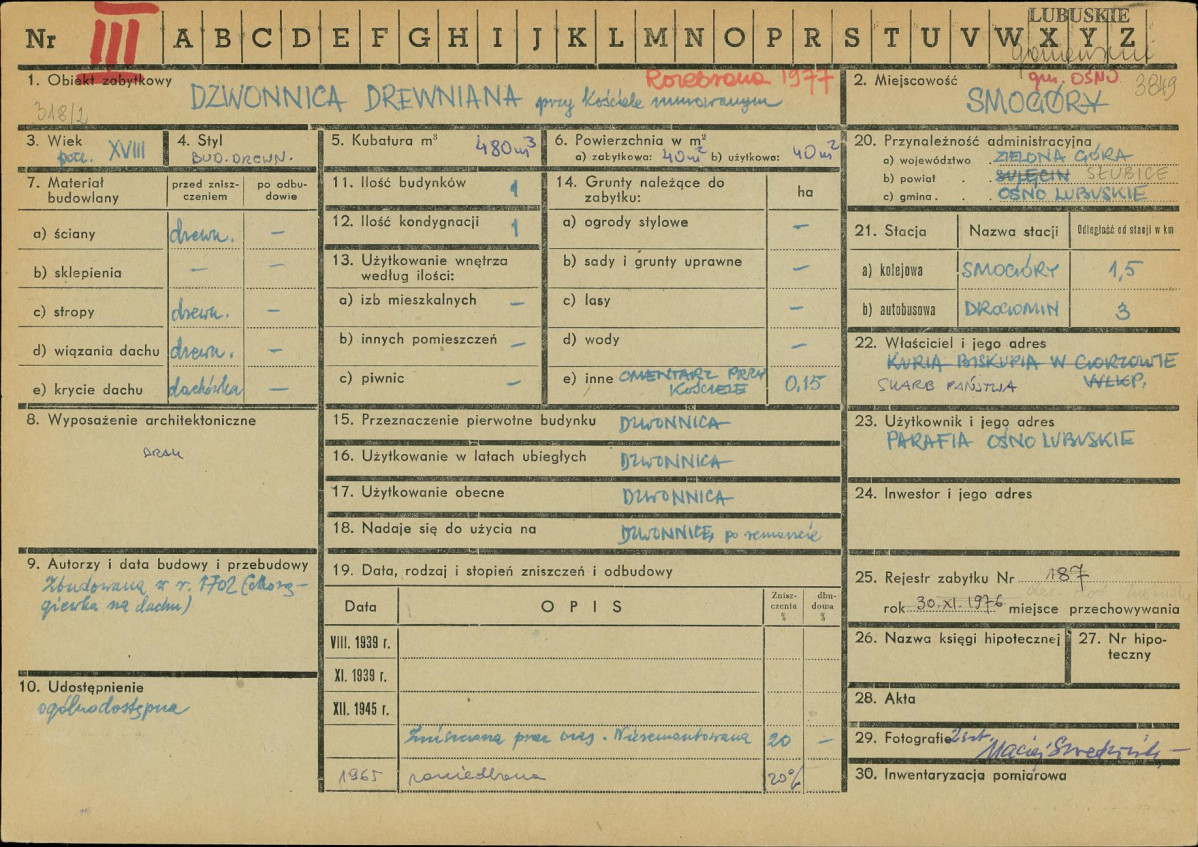 LUBUSKIE
Nr III A B C D E F G H I J K L M N O P R S T U V W X Y Z
1. Obiekt zabytkowy
Rozebrana 1977
318/2
DZWONNICA DREWNIANA przy kościele murowanym
2. Miejscowość
gm. OŚNO
3849
SMOGÓRY
3. Wiek
poc. XVIII
4. Styl
BUD. DREWN.
5. Kubatura m³
480 m³
6. Powierzchnia w m²
a) zabytkowa: 40 m² b) użytkowa: 40 m²
7. Materiał budowlany
przed znisz-
czeniem
po odbu-
dowie
a) ściany drewn. —
b) sklepienia — —
c) stropy drewn. —
d) wiązania dachu drewn. —
e) krycie dachu dachówka —
8. Wyposażenie architektoniczne
BRAK
9. Autorzy i data budowy i przebudowy
Zbudowana w r. 1702 (chorą-
giewka na dachu)
10. Udostępnienie
ogólnodostępna
11. Ilość budynków 1
12. Ilość kondygnacji 1
13. Użytkowanie wnętrza
według ilości:
a) izb mieszkalnych —
b) innych pomieszczeń —
c) piwnic —
14. Grunty należące do
zabytku:
ha
a) ogrody stylowe —
b) sady i grunty uprawne —
c) lasy —
d) wody —
e) inne CMENTARZ PRZY
KOŚCIELE 0,15
15. Przeznaczenie pierwotne budynku DZWONNICA
16. Użytkowanie w latach ubiegłych DZWONNICA
17. Użytkowanie obecne DZWONNICA
18. Nadaje się do użycia na DZWONNICĘ, po remoncie
19. Data, rodzaj i stopień zniszczeń i odbudowy
Data OPIS Znisz-
czenia
% dbu-
dowa
%
VIII. 1939 r.
XI. 1939 r.
XII. 1945 r.
Zniszczona prze czas. Nieremontowana 20 —
1965 zaniedbana 20%
20. Przynależność administracyjna
a) województwo ZIELONA GÓRA
b) powiat SULĘCIN SŁUBICE
c) gmina OŚNO LUBUSKIE
21. Stacja Nazwa stacji Odległość od stacji w km
a) kolejowa SMOGÓRY 1,5
b) autobusowa DROGOMIN 3
22. Właściciel i jego adres
KURIA BISKUPIA W GORZOWIE
WLKP.
SKARB PAŃSTWA
23. Użytkownik i jego adres
PARAFIA OŚNO LUBUSKIE
24. Inwestor i jego adres
25. Rejestr zabytku Nr 187
rok 30.XI.1976 miejsce przechowywania
26. Nazwa księgi hipotecznej
27. Nr hipo-
teczny
28. Akta
29. Fotografie 2 szt.
30. Inwentaryzacja pomiarowa